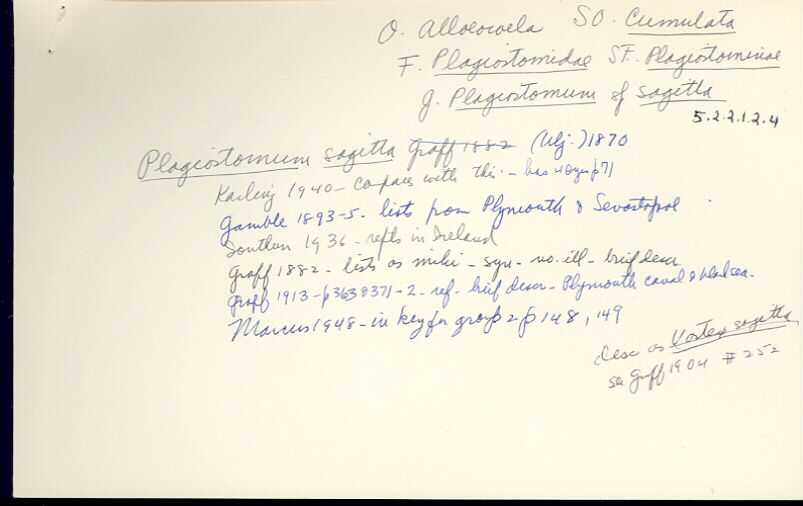 O. Alloeocoela SO. Cumulata
F. Plagiostomidae SF. Plagiostominae
g. Plagiostomum of sagitta
5.2.2.1.2.4
Plagiostomum sagitta Graff 1882 (Ulj.) 1870
Karling 1940 - compares with this - has 4 eyes p71
Gamble 1893-5 - lists from Plymouth & Sevastopol
Southern 1936 - repts in Ireland
Graff 1882 - lists as - syn - no ill - brief descr
Graff 1913 - p363 & 371-2 - ref - brief descr - Plymouth canal & black sea.
Marcus 1948 - in key for group 2 p 148, 149
desc as Vortex sagitta
see Graff 1904 # 252